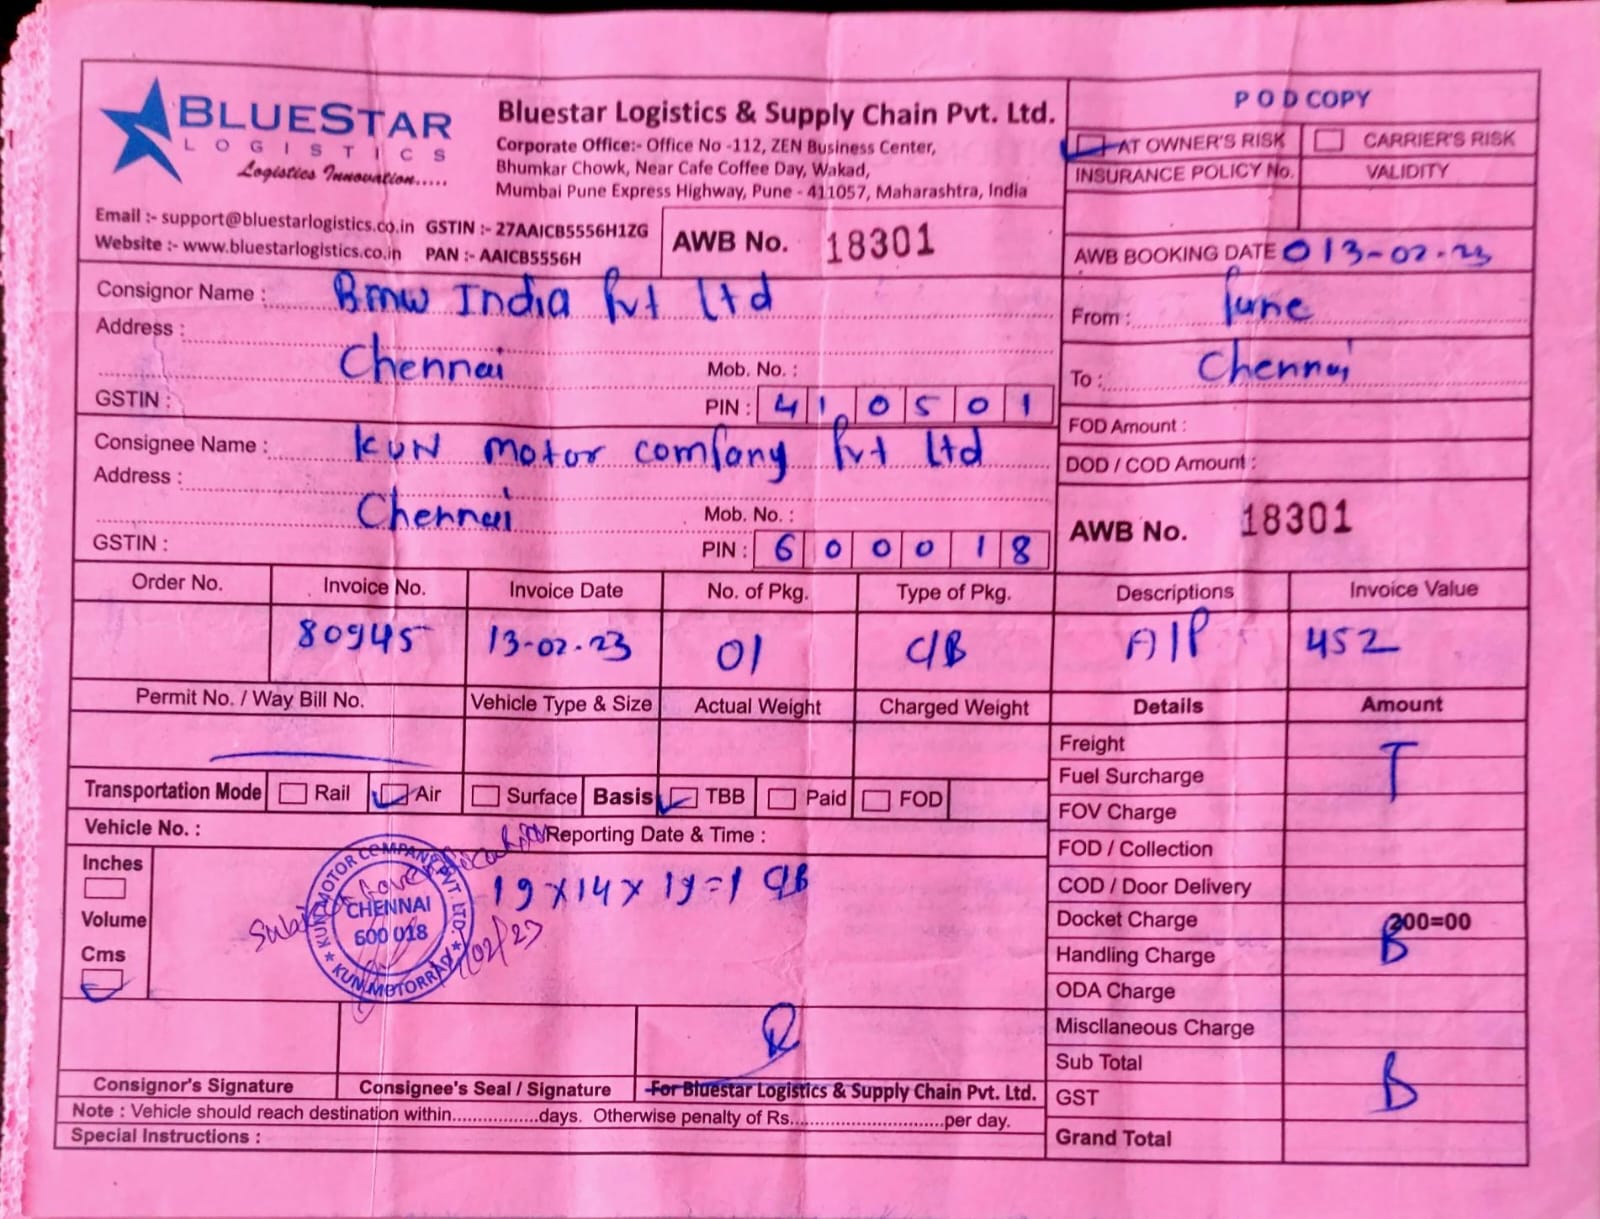 BLUESTAR
LOGISTICS
Logistics Innovation.....
Bluestar Logistics & Supply Chain Pvt. Ltd.
Corporate Office:- Office No -112, ZEN Business Center,
Bhumkar Chowk, Near Cafe Coffee Day, Wakad,
Mumbai Pune Express Highway, Pune - 411057, Maharashtra, India
Email :- support@bluestarlogistics.co.in GSTIN :- 27AAICB5556H1ZG
Website :- www.bluestarlogistics.co.in PAN :- AAICB5556H
AWB No. 18301
P O D COPY
AT OWNER'S RISK CARRIER'S RISK
INSURANCE POLICY No. VALIDITY
AWB BOOKING DATE 13-02-23
Consignor Name : BMW India Pvt Ltd
Address :
Chennai Mob. No. :
GSTIN : PIN : 410501
From : Pune
To : Chennai
FOD Amount :
DOD / COD Amount :
Consignee Name : KUN Motor Company Pvt Ltd
Address :
Chennai Mob. No. :
GSTIN : PIN : 600018
AWB No. 18301
Order No. Invoice No. Invoice Date No. of Pkg. Type of Pkg. Descriptions Invoice Value
80945 13-02-23 01 C/B A/P 452
Permit No. / Way Bill No. Vehicle Type & Size Actual Weight Charged Weight Details Amount
Transportation Mode Rail Air Surface Basis TBB Paid FOD
Vehicle No. : Reporting Date & Time :
Inches
Volume
Cms
19 x 14 x 19 = 1 C/B
KUN MOTOR COMPANY PVT. LTD.
CHENNAI
600 018
* KUN MOTORRAD *
/02/23
Freight T
Fuel Surcharge
FOV Charge
FOD / Collection
COD / Door Delivery
Docket Charge 200=00
Handling Charge B
ODA Charge
Miscllaneous Charge
Sub Total
GST B
Grand Total
Consignor's Signature Consignee's Seal / Signature For Bluestar Logistics & Supply Chain Pvt. Ltd.
Note : Vehicle should reach destination within.................days. Otherwise penalty of Rs.............................per day.
Special Instructions :